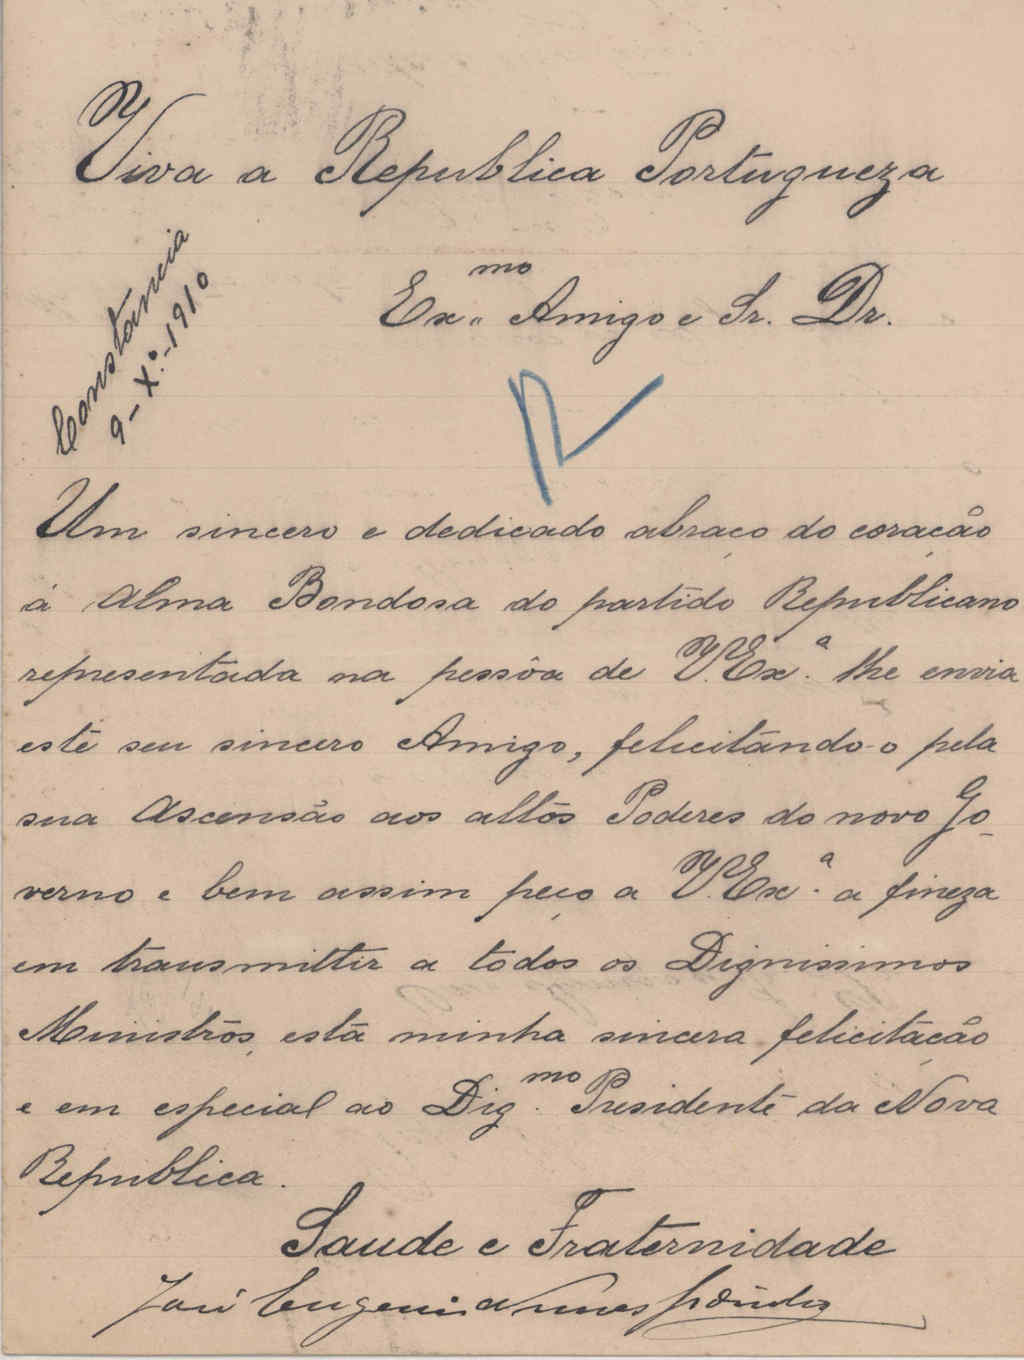 Viva a Republica Portugueza
Constância
9-Xº-1910
Exmo. Amigo e Sr. Dr.
R
Um sincero e dedicado abraço do coração
á Alma Bondosa do partido Republicano
representada na pessôa de V. Exª. lhe envia
este seu sincero Amigo, felicitando-o pela
sua Ascensão aos altos Poderes do novo Go-
verno e bem assim peço a V. Exª. a fineza
em transmittir a todos os Dignissimos
Ministros, esta minha sincera felicitação
e em especial ao Dig.mo Presidente da Nova
Republica.
Saude e Fraternidade
José Eugenio Nunes